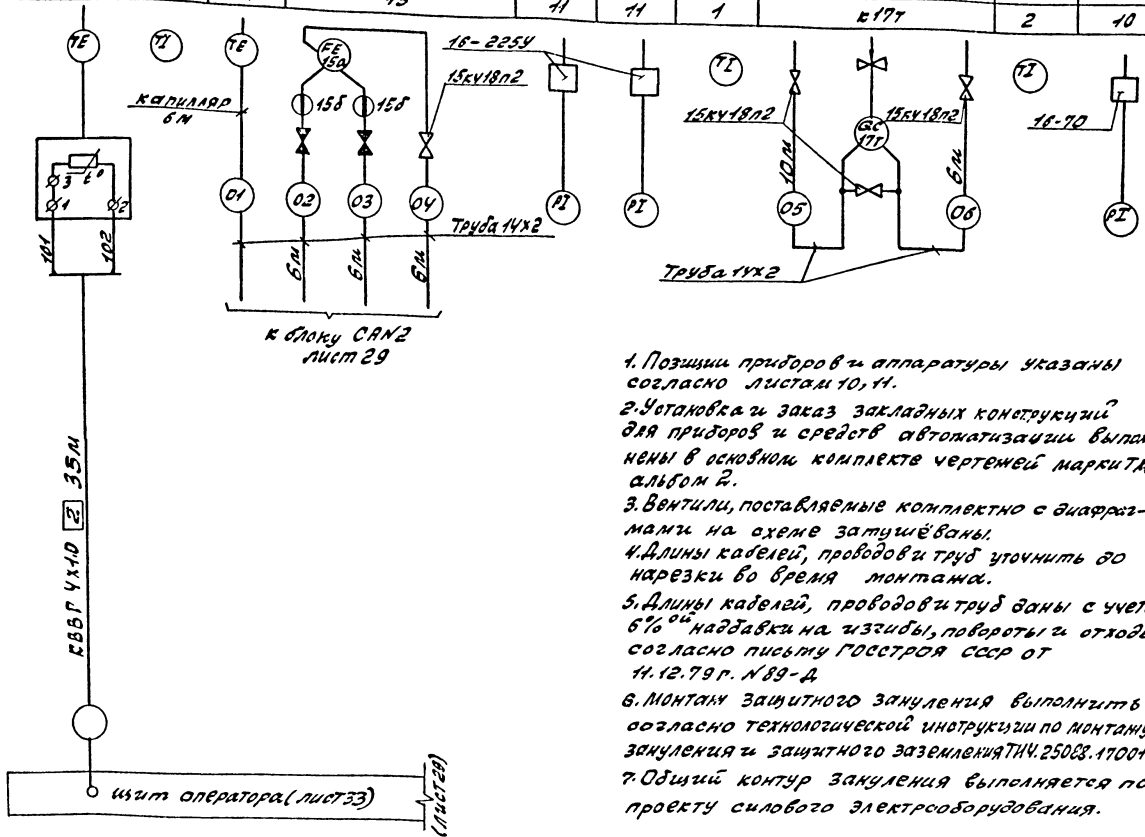 13
11
11
1
к17т
2
10
TE
TI
TE
FE
15а
16-225У
TI
TI
капилляр
6м
15б
15б
15кч18п2
15кч18п2
15кч18п2
16-70
GC
17т
10м
6м
3
t°
1
2
01
02
03
04
PI
PI
05
06
PI
101
102
Труба 14х2
6м
6м
6м
Труба 14х2
к блоку САN2
лист 29
КВВГ 4х1.0 2 35м
щит оператора (лист33)
(лист29)
1. Позиции приборов и аппаратуры указаны
согласно листам 10, 11.
2. Установка и заказ закладных конструкций
для приборов и средств автоматизации выпол
нены в основном комплекте чертежей марки
альбом 2.
3. Вентили, поставляемые комплектно с диафраг-
мами на схеме затушёваны.
4. Длины кабелей, проводов и труб уточнить до
нарезки во время монтажа.
5. Длины кабелей, проводов и труб даны с учет
6%ой надбавки на изгибы, повороты и отходы
согласно письму Госстроя СССР от
11.12.79г. №89-Д
6. Монтаж защитного зануления выполнить
согласно технологической инструкции по монтажу
зануления и защитного заземления ТИ4.25088.17001
7. Общий контур зануления выполняется по
проекту силового электрооборудования.